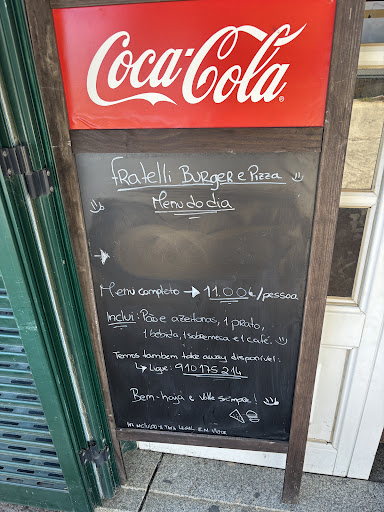 Coca-Cola
Fratelli Burger e Pizza
Menu do dia
Menu completo → 11.00€/pessoa
Inclui: Pão e azeitonas, 1 prato,
1 bebida, 1 sobremesa e 1 café.
Temos tambem take away disponível:
↳ Ligue: 910 175 214
Bem-haja e volte sempre!
IVA INCLUIDO À TAXA LEGAL EM VIGOR